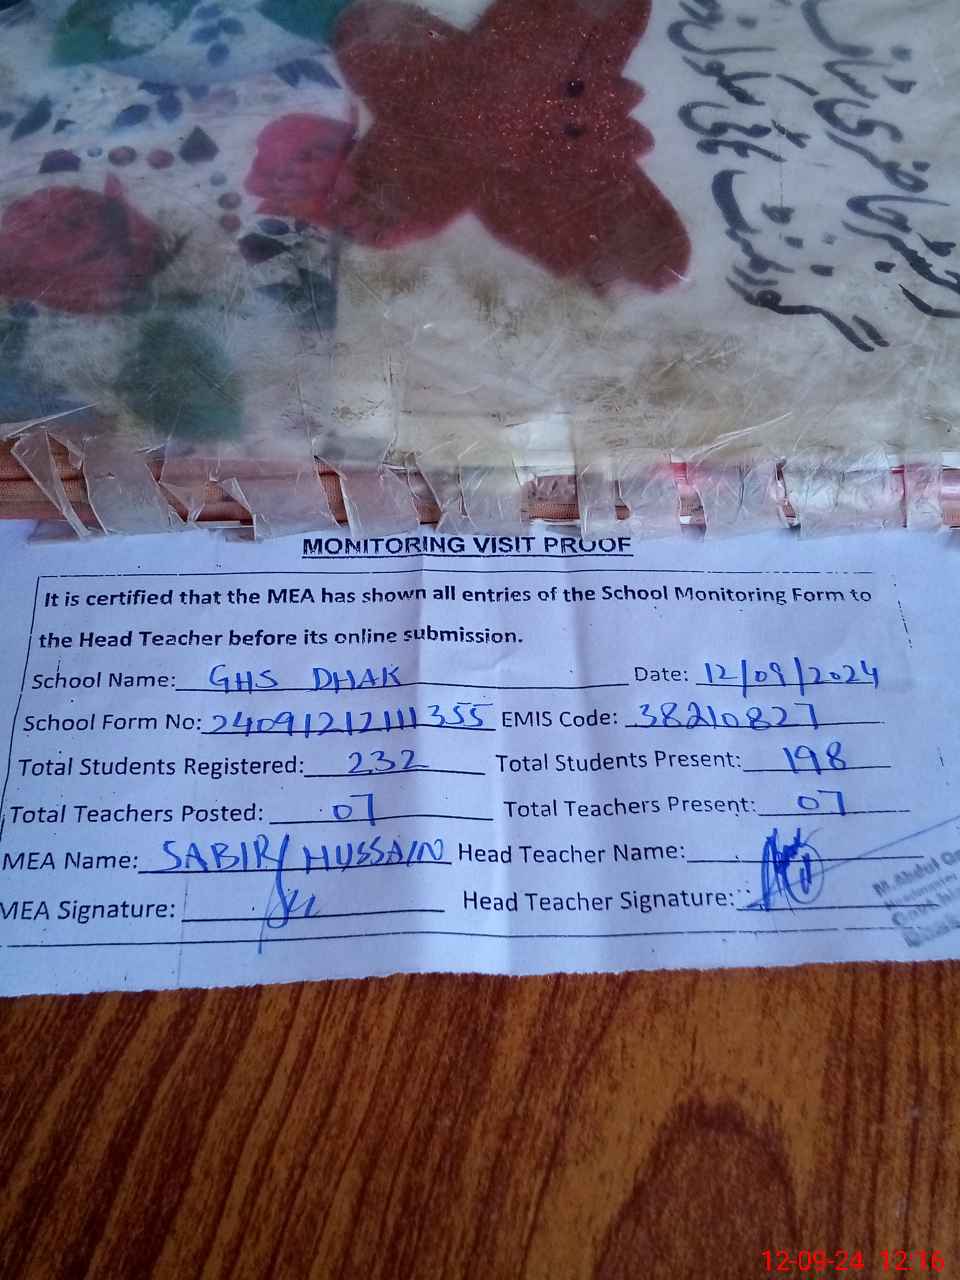 گورنمنٹ ہائی سکول
رجسٹر حاضری
MONITORING VISIT PROOF
It is certified that the MEA has shown all entries of the School Monitoring Form to
the Head Teacher before its online submission.
School Name: GHS DHAK Date: 12/09/2024
School Form No: 24091212111355 EMIS Code: 38210827
Total Students Registered: 232 Total Students Present: 198
Total Teachers Posted: 07 Total Teachers Present: 07
MEA Name: SABIR HUSSAIN Head Teacher Name:
MEA Signature: Head Teacher Signature:
M. Abdul
12-09-24 12:16